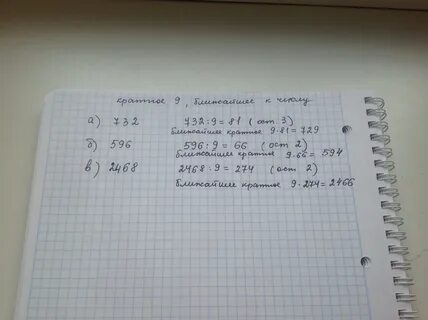 кратное 9, ближайшее к числу
а) 732 732:9=81 (ост. 3)
ближайшее кратное 9·81=729
б) 596 596:9=66 (ост 2)
ближайшее кратное 9·66=594
в) 2468 2468:9=274 (ост 2)
ближайшее кратное 9·274=2466